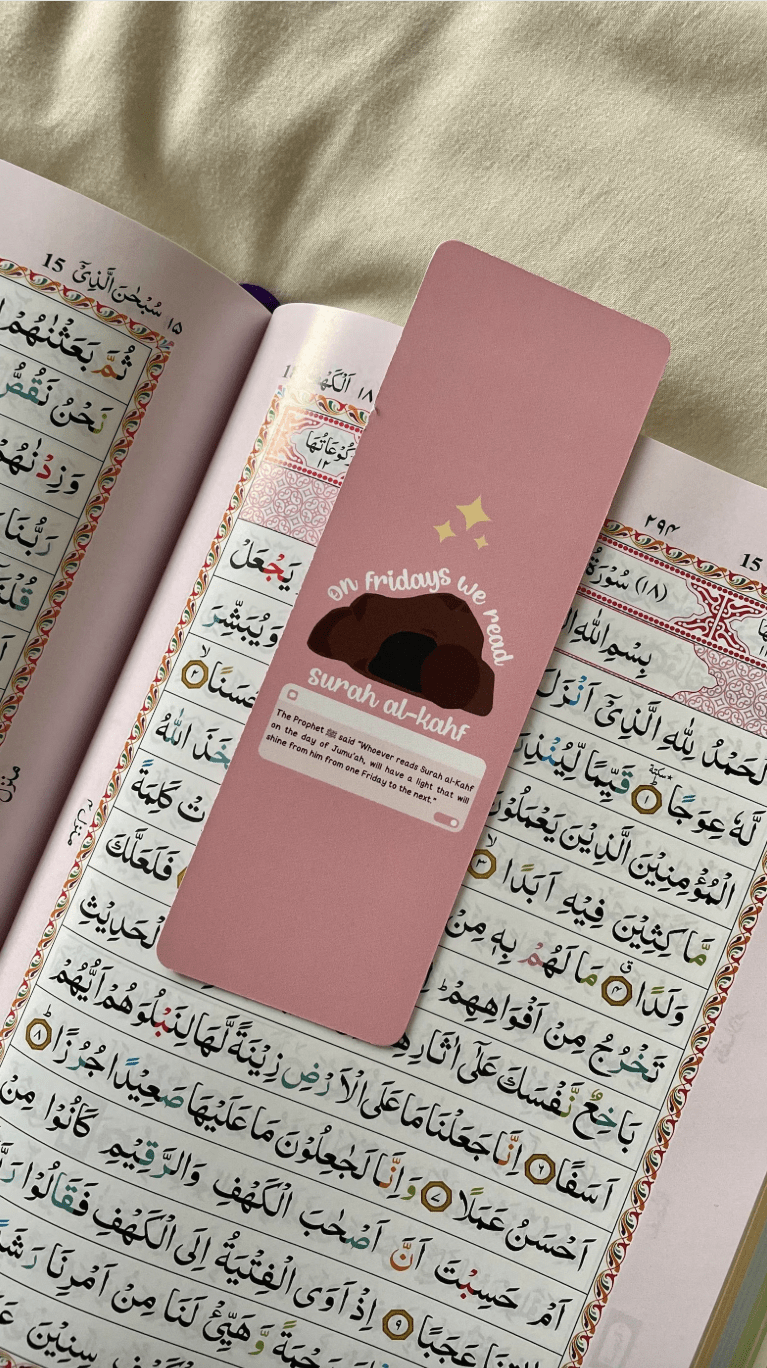 15 سُبْحٰنَ الَّذِیْۤ ١٥
ثُمَّ بَعَثْنٰهُمْ
نَحْنُ نَقُصُّ
وَزِدْنٰهُمْ
رَبُّنَا
منزل
15 ٢٩٤ اَلْكَهْف ١٨
(١٨) سُوْرَةُ رُكُوْعَاتُهَا ١٢
بِسْمِ اللّٰهِ
لْحَمْدُ لِلّٰهِ الَّذِیْۤ اَنْزَلَ یَجْعَلْ
لَّهٗ عِوَجًا ١ سكتة قَیِّمًا لِّیُنْذِرَ وَیُبَشِّرَ
الْمُؤْمِنِیْنَ الَّذِیْنَ یَعْمَلُوْنَ حَسَنًا ٢
مَّا كِثِیْنَ فِیْهِ اَبَدًا ٣ اللّٰهُ
وَلَدًا ٤ مَا لَهُمْ بِهٖ مِنْ كَلِمَةً
تَخْرُجُ مِنْ اَفْوَاهِهِمْ فَلَعَلَّكَ
بَاخِعٌ نَّفْسَكَ عَلٰۤی اٰثَارِهِمْ الْحَدِیْثِ
اَسَفًا ٦ اِنَّا جَعَلْنَا مَا عَلَی الْاَرْضِ زِیْنَةً لَّهَا لِنَبْلُوَهُمْ اَیُّهُمْ
اَحْسَنُ عَمَلًا ٧ وَاِنَّا لَجٰعِلُوْنَ مَا عَلَیْهَا صَعِیْدًا جُرُزًا ٨
اَمْ حَسِبْتَ اَنَّ اَصْحٰبَ الْكَهْفِ وَالرَّقِیْمِ كَانُوْا مِنْ
عَجَبًا ٩ اِذْ اَوَی الْفِتْیَةُ اِلَی الْكَهْفِ فَقَالُوْا
وَّهَیِّئْ لَنَا مِنْ اَمْرِنَا رَشَدًا
سِنِیْنَ
منزل ٤
on fridays we read
surah al-kahf
The Prophet ﷺ said "Whoever reads Surah al-Kahf
on the day of Jumu'ah, will have a light that will
shine from him from one Friday to the next."